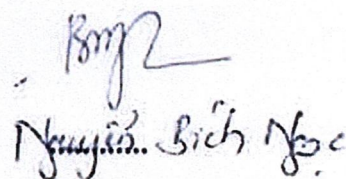 Nguyễn Bích Ngọc